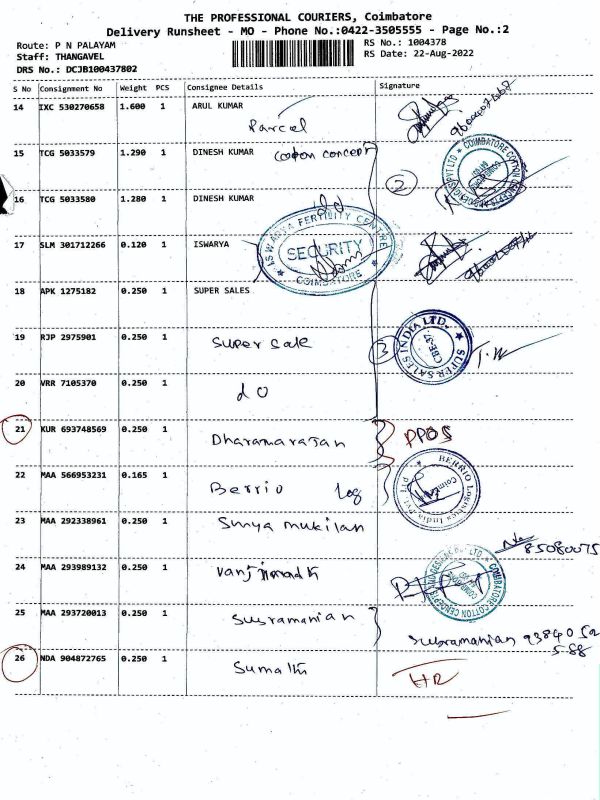 THE PROFESSIONAL COURIERS, Coimbatore
Delivery Runsheet - MO - Phone No.:0422-3505555 - Page No.:2
Route: P N PALAYAM
RS No.: 1004378
Staff: THANGAVEL
RS Date: 22-Aug-2022
DRS No.: DCJB100437802
S No Consignment No Weight PCS Consignee Details Signature
14 IXC 530270658 1.600 1 ARUL KUMAR
Parcel
15 TCG 5033579 1.290 1 DINESH KUMAR
2
16 TCG 5033580 1.280 1 DINESH KUMAR
do
17 SLM 301712266 0.120 1 ISWARYA
ISWARYA FERTILITY CENTRE
SECURITY
COIMBATORE
18 APK 1275182 0.250 1 SUPER SALES
19 RJP 2975901 0.250 1 Super Sale
3
SUPER SALES INDIA LTD.
CBE-37
20 VRR 7105370 0.250 1 do
21 KUR 693748569 0.250 1 Dharamarajan
PPOS
22 MAA 566953231 0.165 1 Berrio Log
BERRIO Logistics India Pvt.
23 MAA 292338961 0.250 1 Surya mukilan
24 MAA 293989132 0.250 1
25 MAA 293720013 0.250 1 Subramanian
Subramanian
26 NDA 904872765 0.250 1 Sumathi
HR